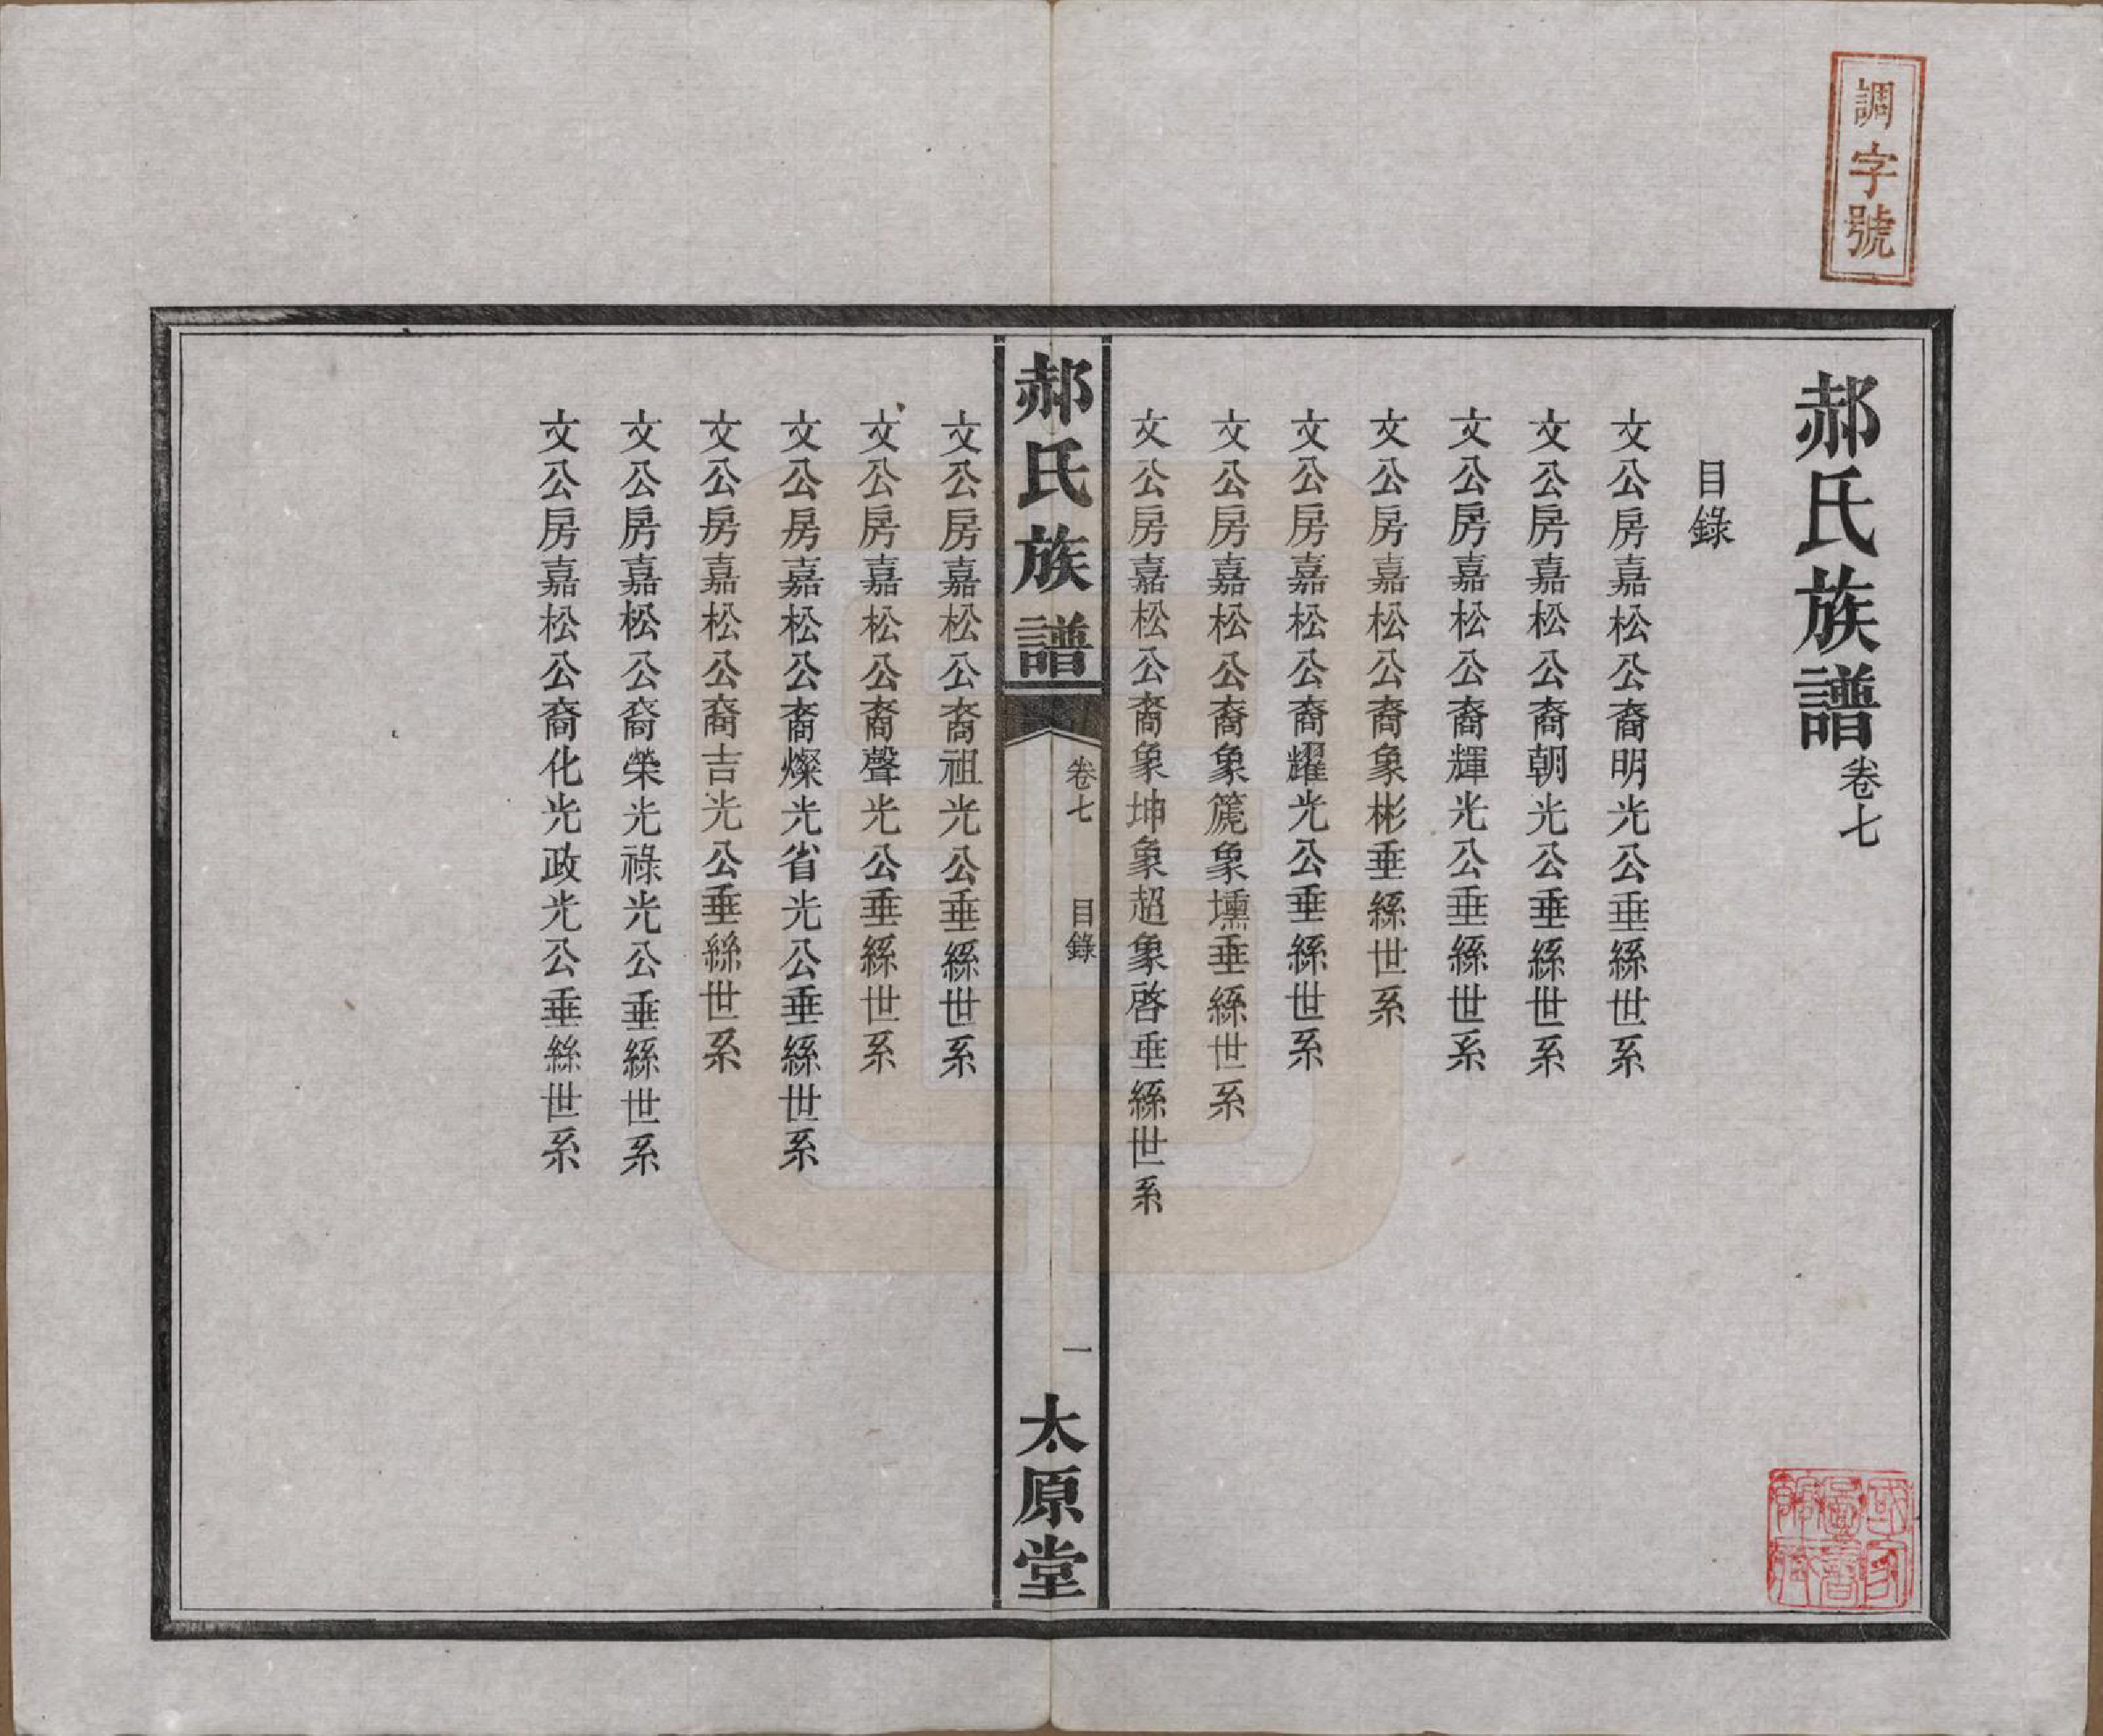 調字號
郝氏族譜卷七
目錄
文公房嘉松公裔明光公垂絲世系
文公房嘉松公裔朝光公垂絲世系
文公房嘉松公裔輝光公垂絲世系
文公房嘉松公裔象彬垂絲世系
文公房嘉松公裔耀光公垂絲世系
文公房嘉松公裔象篪象壎垂絲世系
文公房嘉松公裔象坤象超象啓垂絲世系
郝氏族譜
卷七
目錄
一
太原堂
文公房嘉松公裔祖光公垂絲世系
文公房嘉松公裔聲光公垂絲世系
文公房嘉松公裔燦光省光公垂絲世系
文公房嘉松公裔吉光公垂絲世系
文公房嘉松公裔榮光祿光公垂絲世系
文公房嘉松公裔化光政光公垂絲世系
國家
圖書
館藏